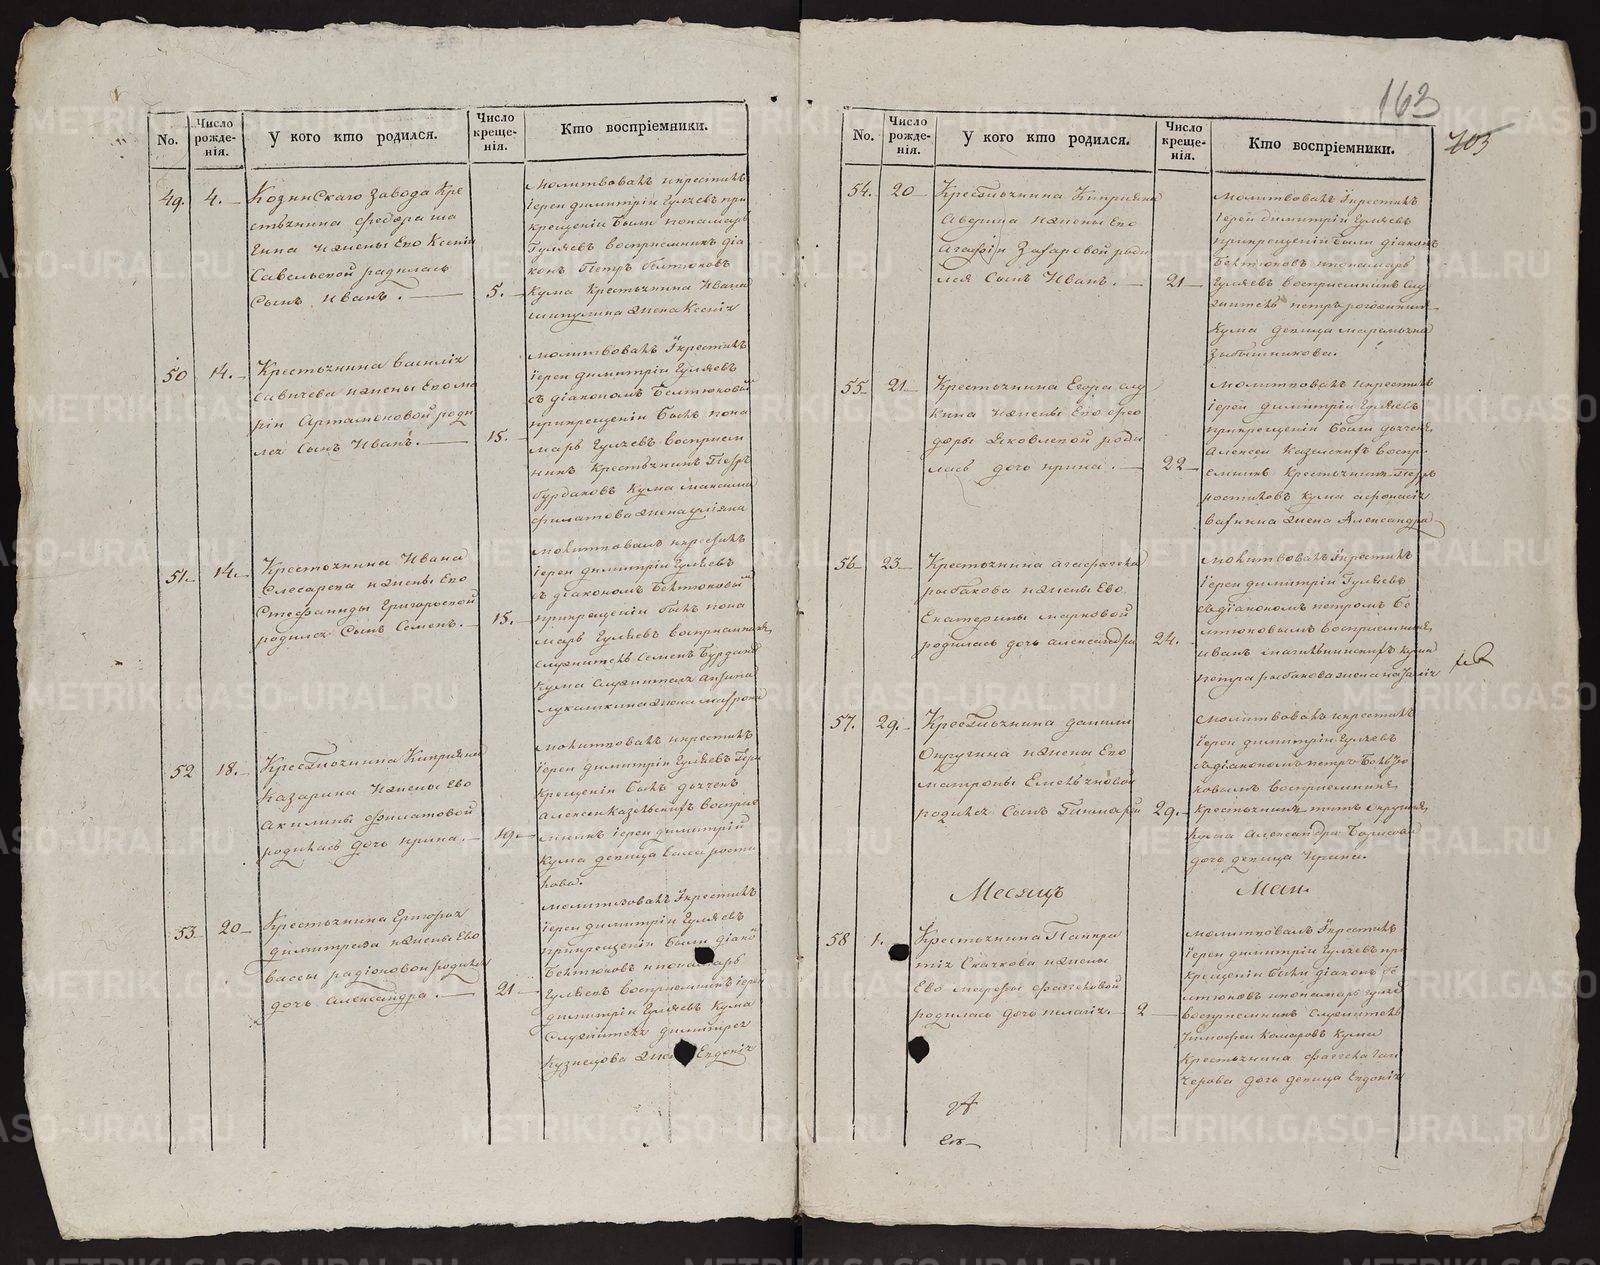 163
705
No.
Число рожде-нія.
У кого кто родился.
Число креще-нія.
Кто воспріемники.
49.
4.
Козинскаго завода Кре
стьянина Федора
и жены Ево Ксении
Савельевой родилась
Сынъ Иванъ.
5.
молитвовалъ и крестилъ
іереи димитріи Гуляевъ при
крещеніи были понамарь
Гуляевъ восприемникъ діа
конъ Петръ Бѣлтюковъ
Кума Крестьянина Ивана
жена Ксения
50
14.
Крестьянина василия
Савичева и жены Ево ма
ріи Артамоновой роди
лся Сынъ Иванъ.
15.
молитвовалъ и крестилъ
іереи димитріи Гуляевъ
съ діакономъ Бѣлтюковымъ
при крещеніи былъ пона
марь Гуляевъ восприем
никъ Крестьянинъ Петръ
Бурдаковъ Кума максима
филатова жена улияна
51.
14.
Крестьянина Ивана
Слесарева и жены Ево
Стефаниды Григорьевой
родился Сынъ Семенъ.
15.
молитвовалъ и крестилъ
іереи димитріи Гуляевъ
съ діакономъ Бѣлтюковымъ
при крещеніи былъ пона
марь Гуляевъ восприемникъ
служитель Семенъ Бурдаковъ
Кума служителя
лукашкина жена мафрона
52
18.
Крестьянина Киприяна
Казарина и жены Ево
Акилины филатовой
родилась дочь ирина.
19.
молитвовалъ и крестилъ
іереи димитріи Гуляевъ при
крещеніи былъ дьячекъ
Алексеи Казельскихъ восприе
мникъ іереи димитріи
Кума девица васса рости
кова.
53
20
Крестьянина Григорья
димитрева и жены Ево
вассы радіоновой родилась
дочь Александра.
21
молитвовалъ и крестилъ
іереи димитріи Гуляевъ
при крещеніи были діаконъ
Бѣлтюковъ и понамарь
Гуляевъ восприемникъ іереи
димитріи Гуляевъ Кума
Служителя димитрея
Кузнецова жена Евдокия
No.
Число рожде-нія.
У кого кто родился.
Число креще-нія.
Кто воспріемники.
54.
20
Крестьянина Киприяна
Аверина и жены Ево
Агафіи Захаровой роди
лся Сынъ Иванъ.
21
молитвовалъ и крестилъ
іереи димитріи Гуляевъ
при крещеніи были діаконъ
Бѣлтюковъ и понамарь
Гуляевъ восприемникъ слу
житель петръ
кума девица марамьяна
Зыбышникова.
55
21
Крестьянина Егора
кина и жены Ево фео
доры Яковлевой роди
лась дочь ирина.
22
молитвовалъ и крестилъ
іереи димитріи Гуляевъ
при крещеніи были дьячекъ
Алексеи Казельскихъ воспри
емникъ Крестьянинъ Петръ
ростиковъ кума афонасія
вахнина жена Александра
56
23
Крестьянина
рыбакова и жены Ево
Екатерины марковой
родилась дочь александра
24.
молитвовалъ и крестилъ
іереи димитріи Гуляевъ
съ діакономъ петромъ Бѣ
лтюковымъ восприемникъ
иванъ кума
петра рыбакова жена наталия
57.
29.
Крестьянина данила
Округина и жены Ево
матроны Емельяновой
родился Сынъ
29.
молитвовалъ и крестилъ
іереи димитріи Гуляевъ
съ діакономъ петромъ Бѣлтю
ковымъ восприемникъ
крестьянинъ титъ округинъ
Кума Александра Борисова
дочь девица Ирина.
Месяцъ Маи.
58
1.
Крестьянина Панкра
тия Скачкова и жены
Ево марфы фатеевой
родилась дочь пелагия.
2
молитвовалъ и крестилъ
іереи димитріи Гуляевъ при
крещеніи были діаконъ Бѣ
лтюковъ и понамарь гуляевъ
восприемникъ служитель
тимофеи Комаровъ Кума
Крестьянина фатея Ган
черова дочь девица Евдокия
METRIKI.GASO-URAL.RU